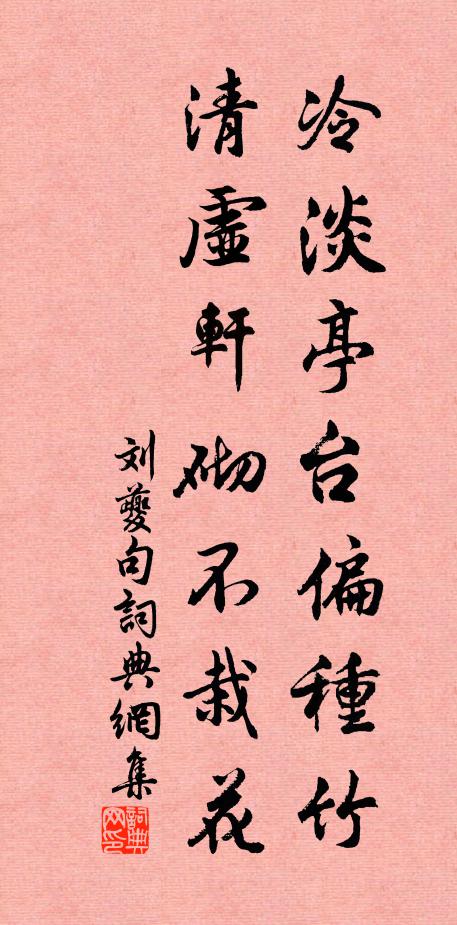 冷淡亭台偏種竹
清虛軒砌不栽花
刘夔句詞典網集
詞典网印